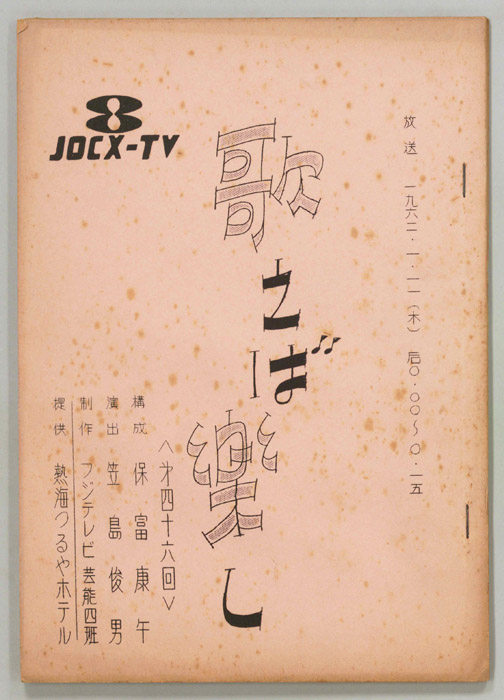 放送 一九六二・一・一一（木） 后〇・〇〇〜〇・一五
歌えば楽し
〈才四十六回〉
構成 保富康午
演出 笠島俊男
制作 フジテレビ芸能四班
提供 熱海つるやホテル
8
JOCX-TV